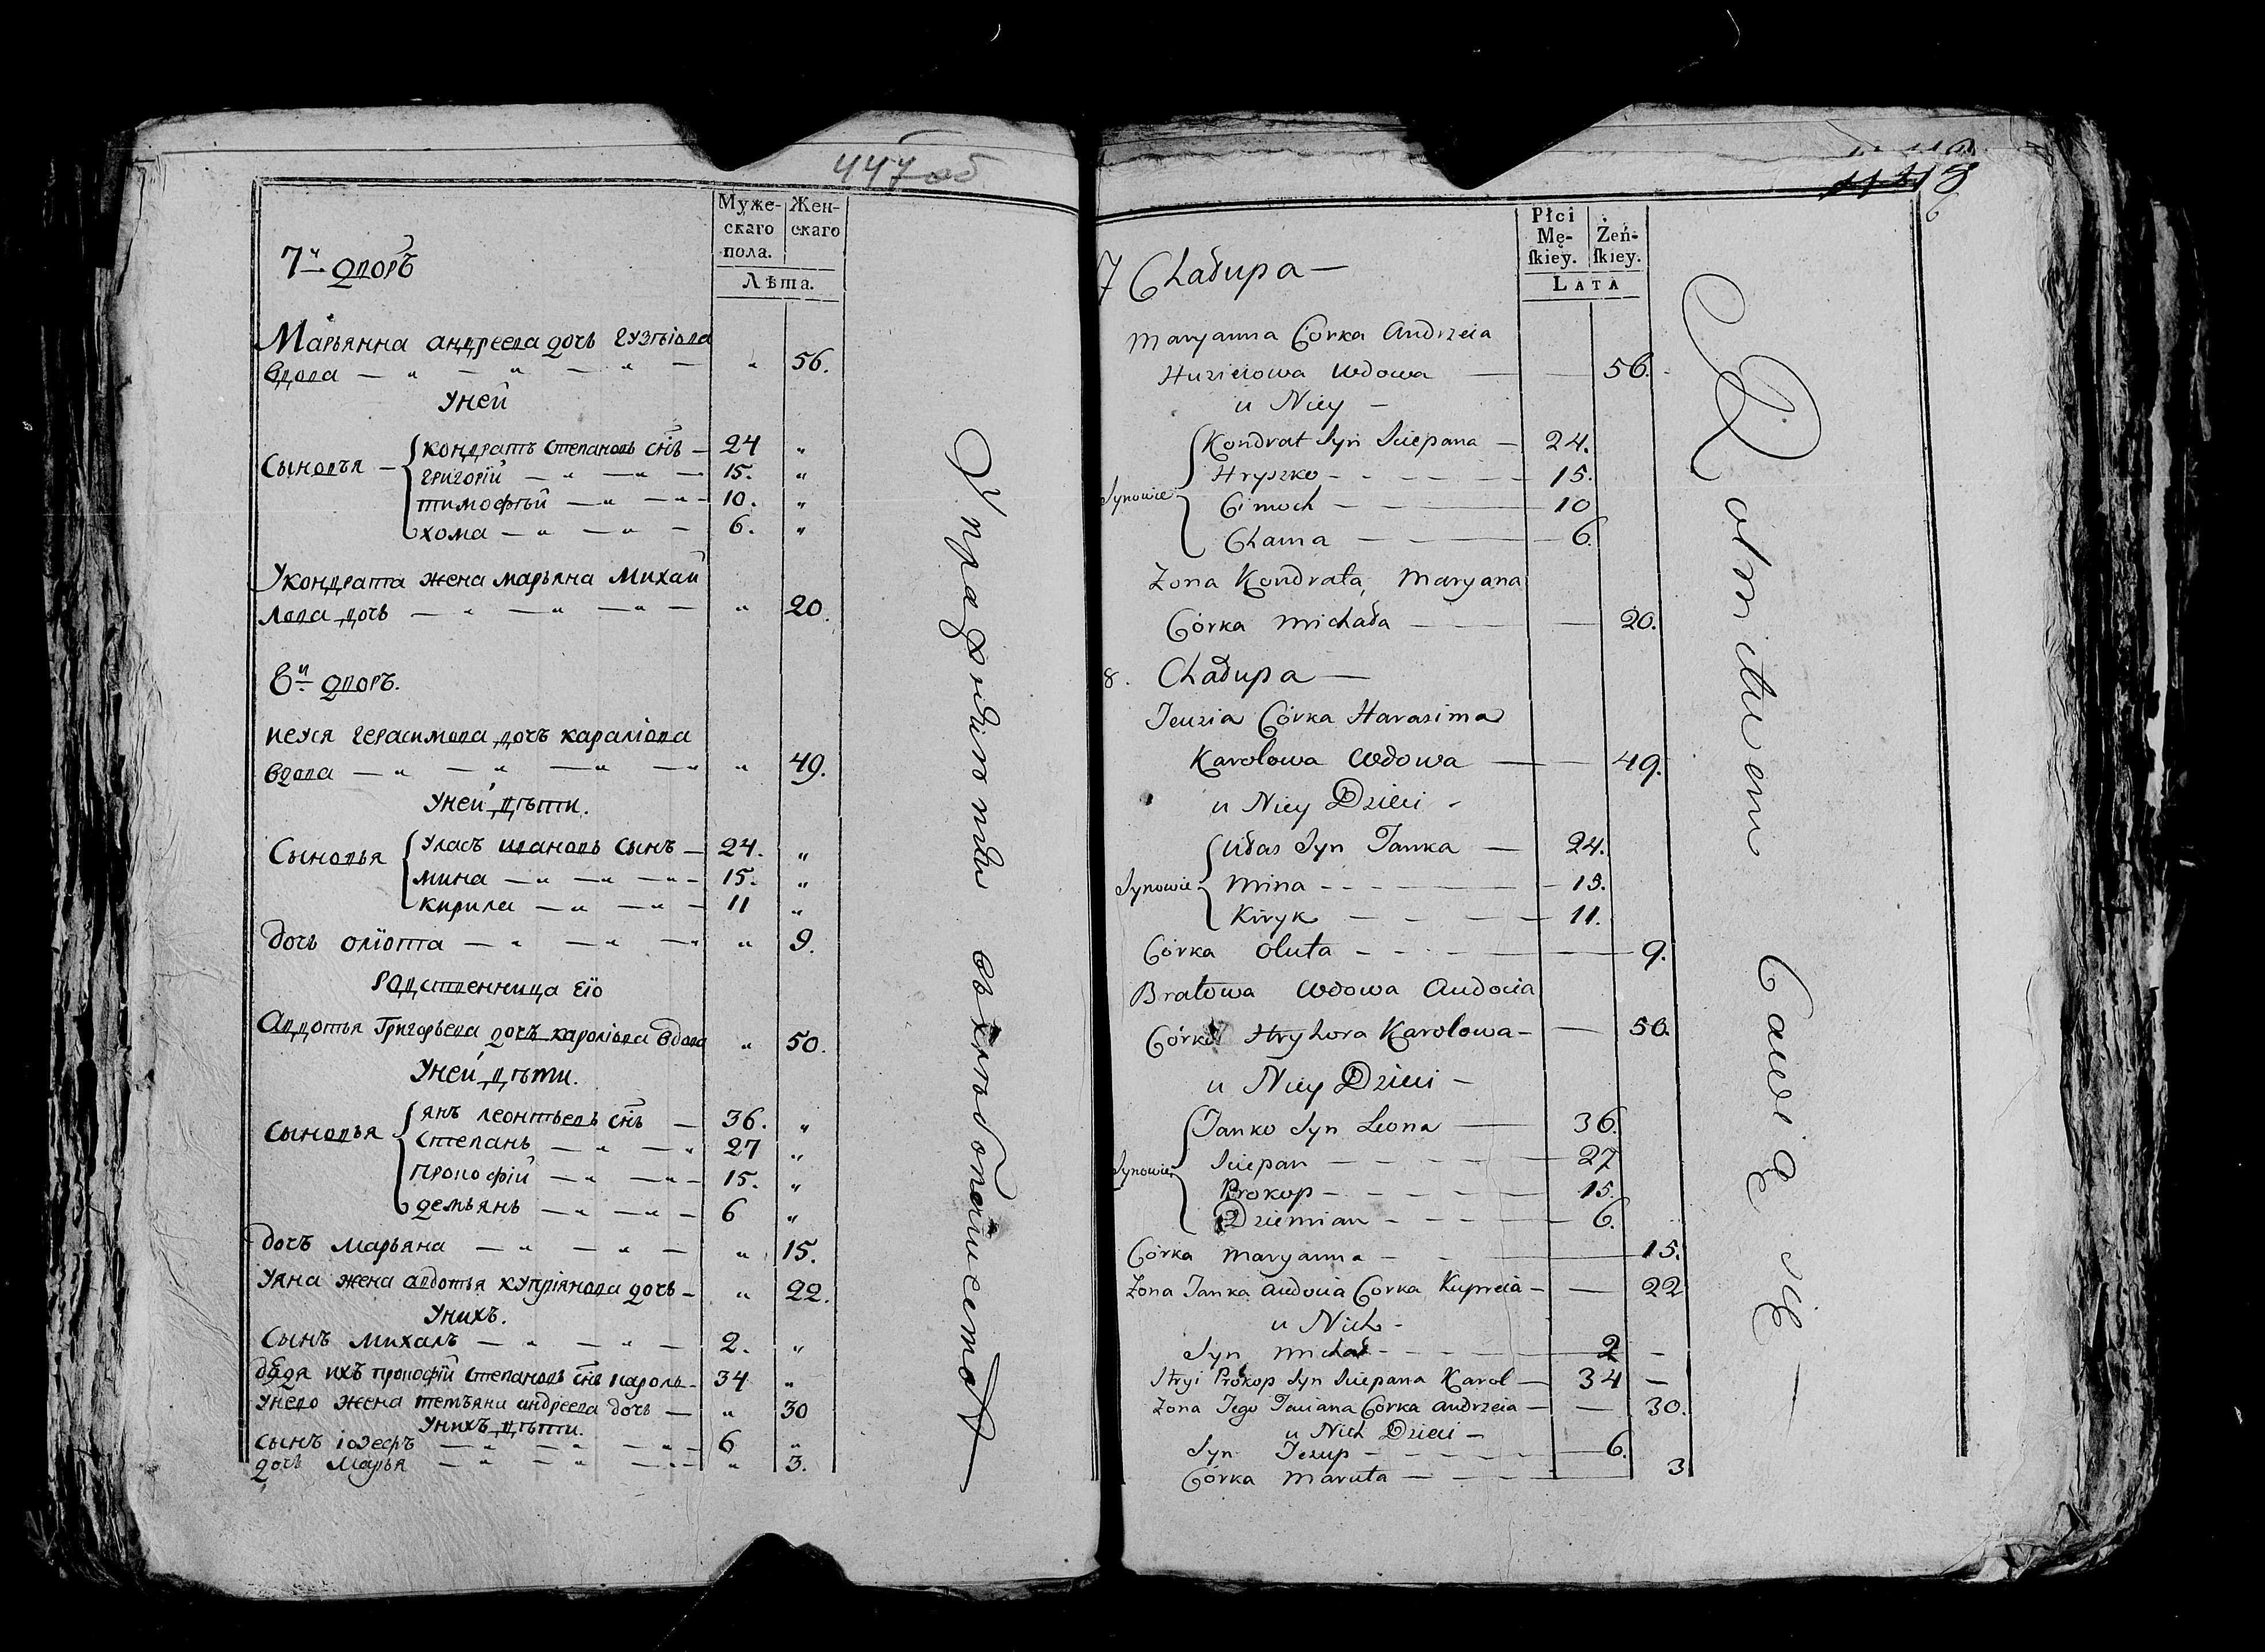 447 об
Муже-
скаго
пола.
Жен-
скаго
Лѣта.
7й дворъ
Марьянна андреева дочь гузѣіова
вдова — „ — „ — „ — „ 56.
Уней
Сыновья — кондратъ степановъ снъ — 24 „
григорій — „ — „ — 15. „
тимофѣй — „ — „ — 10. „
хома — „ — „ — 6. „
Укондрата жена марьяна михай
лова дочь — „ — „ — „ — „ 20.
8й дворъ.
иеуся герасимова дочь караліова
вдова — „ — „ — „ — „ „ 49.
Уней дѣти.
Сыновья уласъ ивановъ сынъ — 24. „
мина — „ — „ — „ — 15. „
кирила — „ — „ — 11 „
дочь оліота — „ — „ — „ „ 9.
Родственница еіо
Авдотья Григорьева дочь кароліова вдова „ 50.
Уней дѣти.
Сыновья янъ леонтьевъ снъ — 36. „
степанъ — „ — „ 27 „
Прокофій — „ — „ — 15. „
демьянъ — „ — „ — 6 „
дочъ марьяна — „ — „ — „ 15.
Уяна жена авдотья купріянова дочь — „ 22.
Унихъ.
Сынъ михалъ — „ — „ — 2. „
дядя ихъ прокофій степановъ снъ кароль — 34 „
Унево жена тетьяна андреева дочь — „ 30
Унихъ дѣти.
сынъ іозефъ — „ — „ — „ — 6 „
дочь марья — „ — „ — „ — „ 3.
Упражнѣнии въ хлѣбопашествѣ
Płci
Mę-
ſkiey.
Żeń-
ſkiey.
LATA
7 Chałupa —
Maryanna Córka Andrzeia
Huzieiowa Wdowa — — 56.
u Niey —
Synowie Kondrat Syn Sciepana — 24.
Hryszko — — — 15.
Cimoch — — — 10
Chama — — — 6.
Zona Kondrata, Maryana
Córka Michała — — — 20.
8. Chałupa —
Jeuzia Córka Harasima
Karolowa Wdowa — — 49.
u Niey Dzieci —
Synowie Ułas Syn Janka — 24.
Mina — — — 15.
Kiryk — — — 11.
Córka Oluta — — — 9.
Bratowa Wdowa Audocia
Córka Hryhora Karolowa — — 50.
u Niey Dzieci —
Synowie Janko Syn Leona — 36.
Sciepan — — — 27
Prokop — — — 15.
Dziemian — — — 6.
Córka Maryanna — — — 15.
Zona Janka Audocia Corka Kupreia — — 22
u Nich —
Syn Michał — — — 2 —
Stryi Prokop Syn Sciepana Karol — 34 —
Zona Jego Taciana Córka Andrzeia — — 30.
u Nich Dzieci —
Syn Jezup — — — 6.
Córka Maruta — — — 3
Rolnictwem Bawią się —